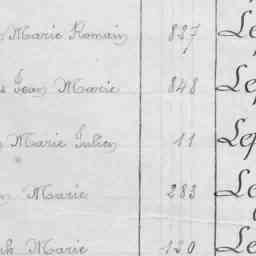 Marie Romain 827 Le
Jean Marie 848 Le
Marie Julien 11 Lep
Marie 283 Le
Marie 120 Le